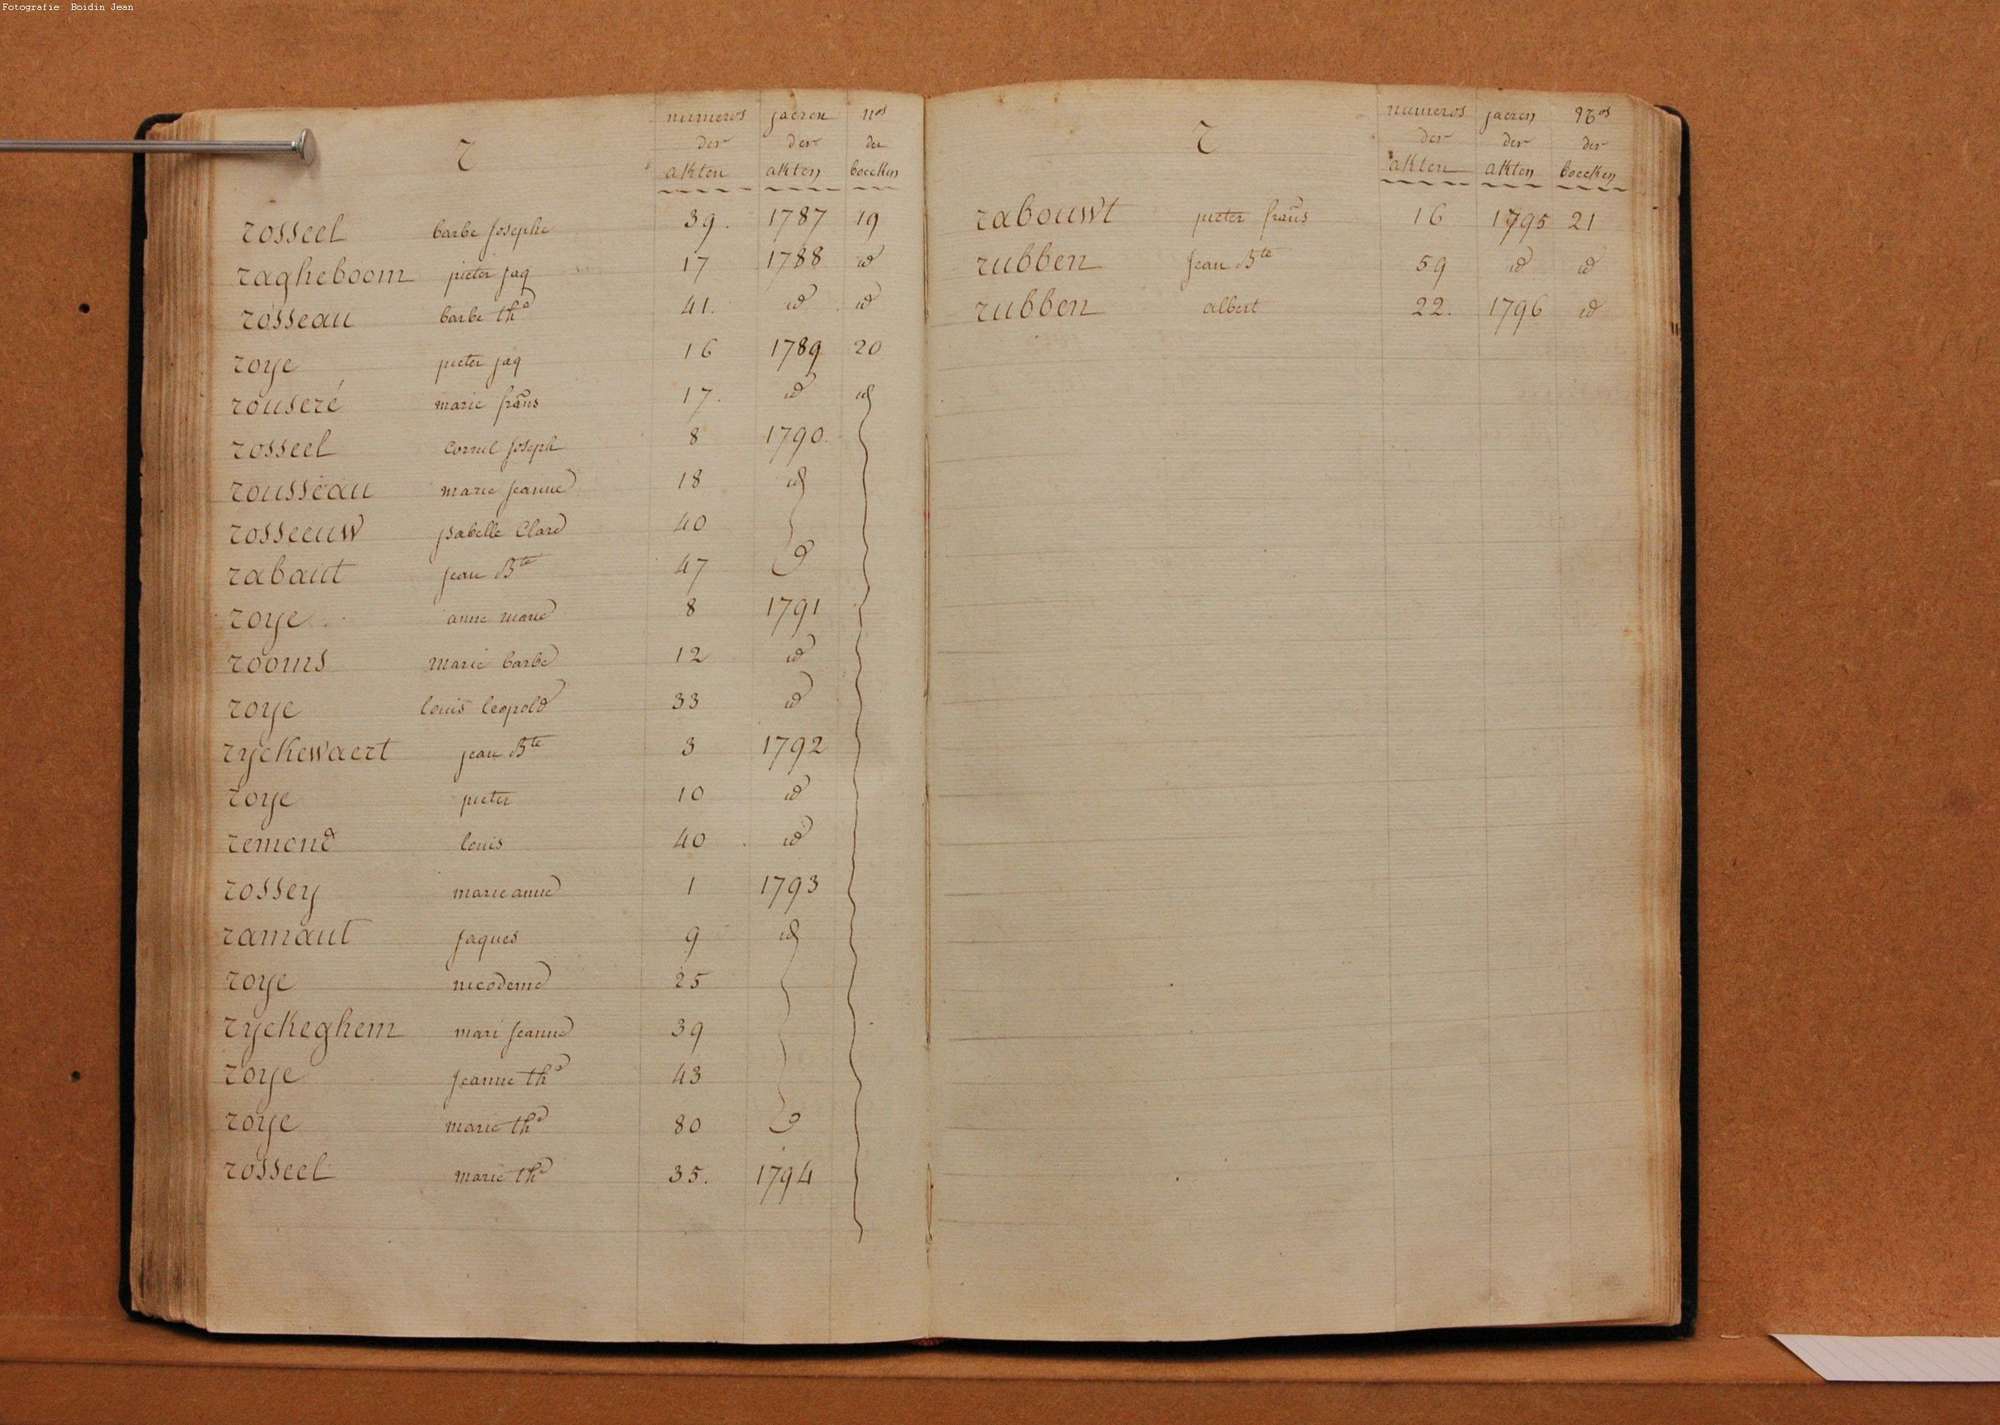 Fotografie Boidin Jean
r numeros jaeren nos
der der der
akten akten boecken
rosseel barbe Josephe 39. 1787 19
ragheboom pieter jaq 17 1788 id
rosseau barbe the 41. id id
roye pieter jaq 16 1789 20
rouseré marie frans 17. id id
rosseel Cornil Joseph 8 1790.
rousseau marie Jeanne 18 id
rosseeuw ysabelle Clare 40
rabaut jean Bte 47
roye anne marie 8 1791
rooms marie barbe 12 id
roye louis leopold 33 id
ryckewaert jean Bte 3 1792
roye pieter 10 id
remond louis 40 id
rossey marie anne 1 1793
ramaut Jaques 9 id
roye nicodeme 25
ryckeghem mari Jeanne 39
roye Jeanne the 43
roye marie the 80
rosseel marie the 35. 1794
r numeros jaeren Nos
der der der
akten akten boecken
rabouwt pieter frans 16 1795 21
rubben Jean Bte 59 id id
rubben albert 22. 1796 id